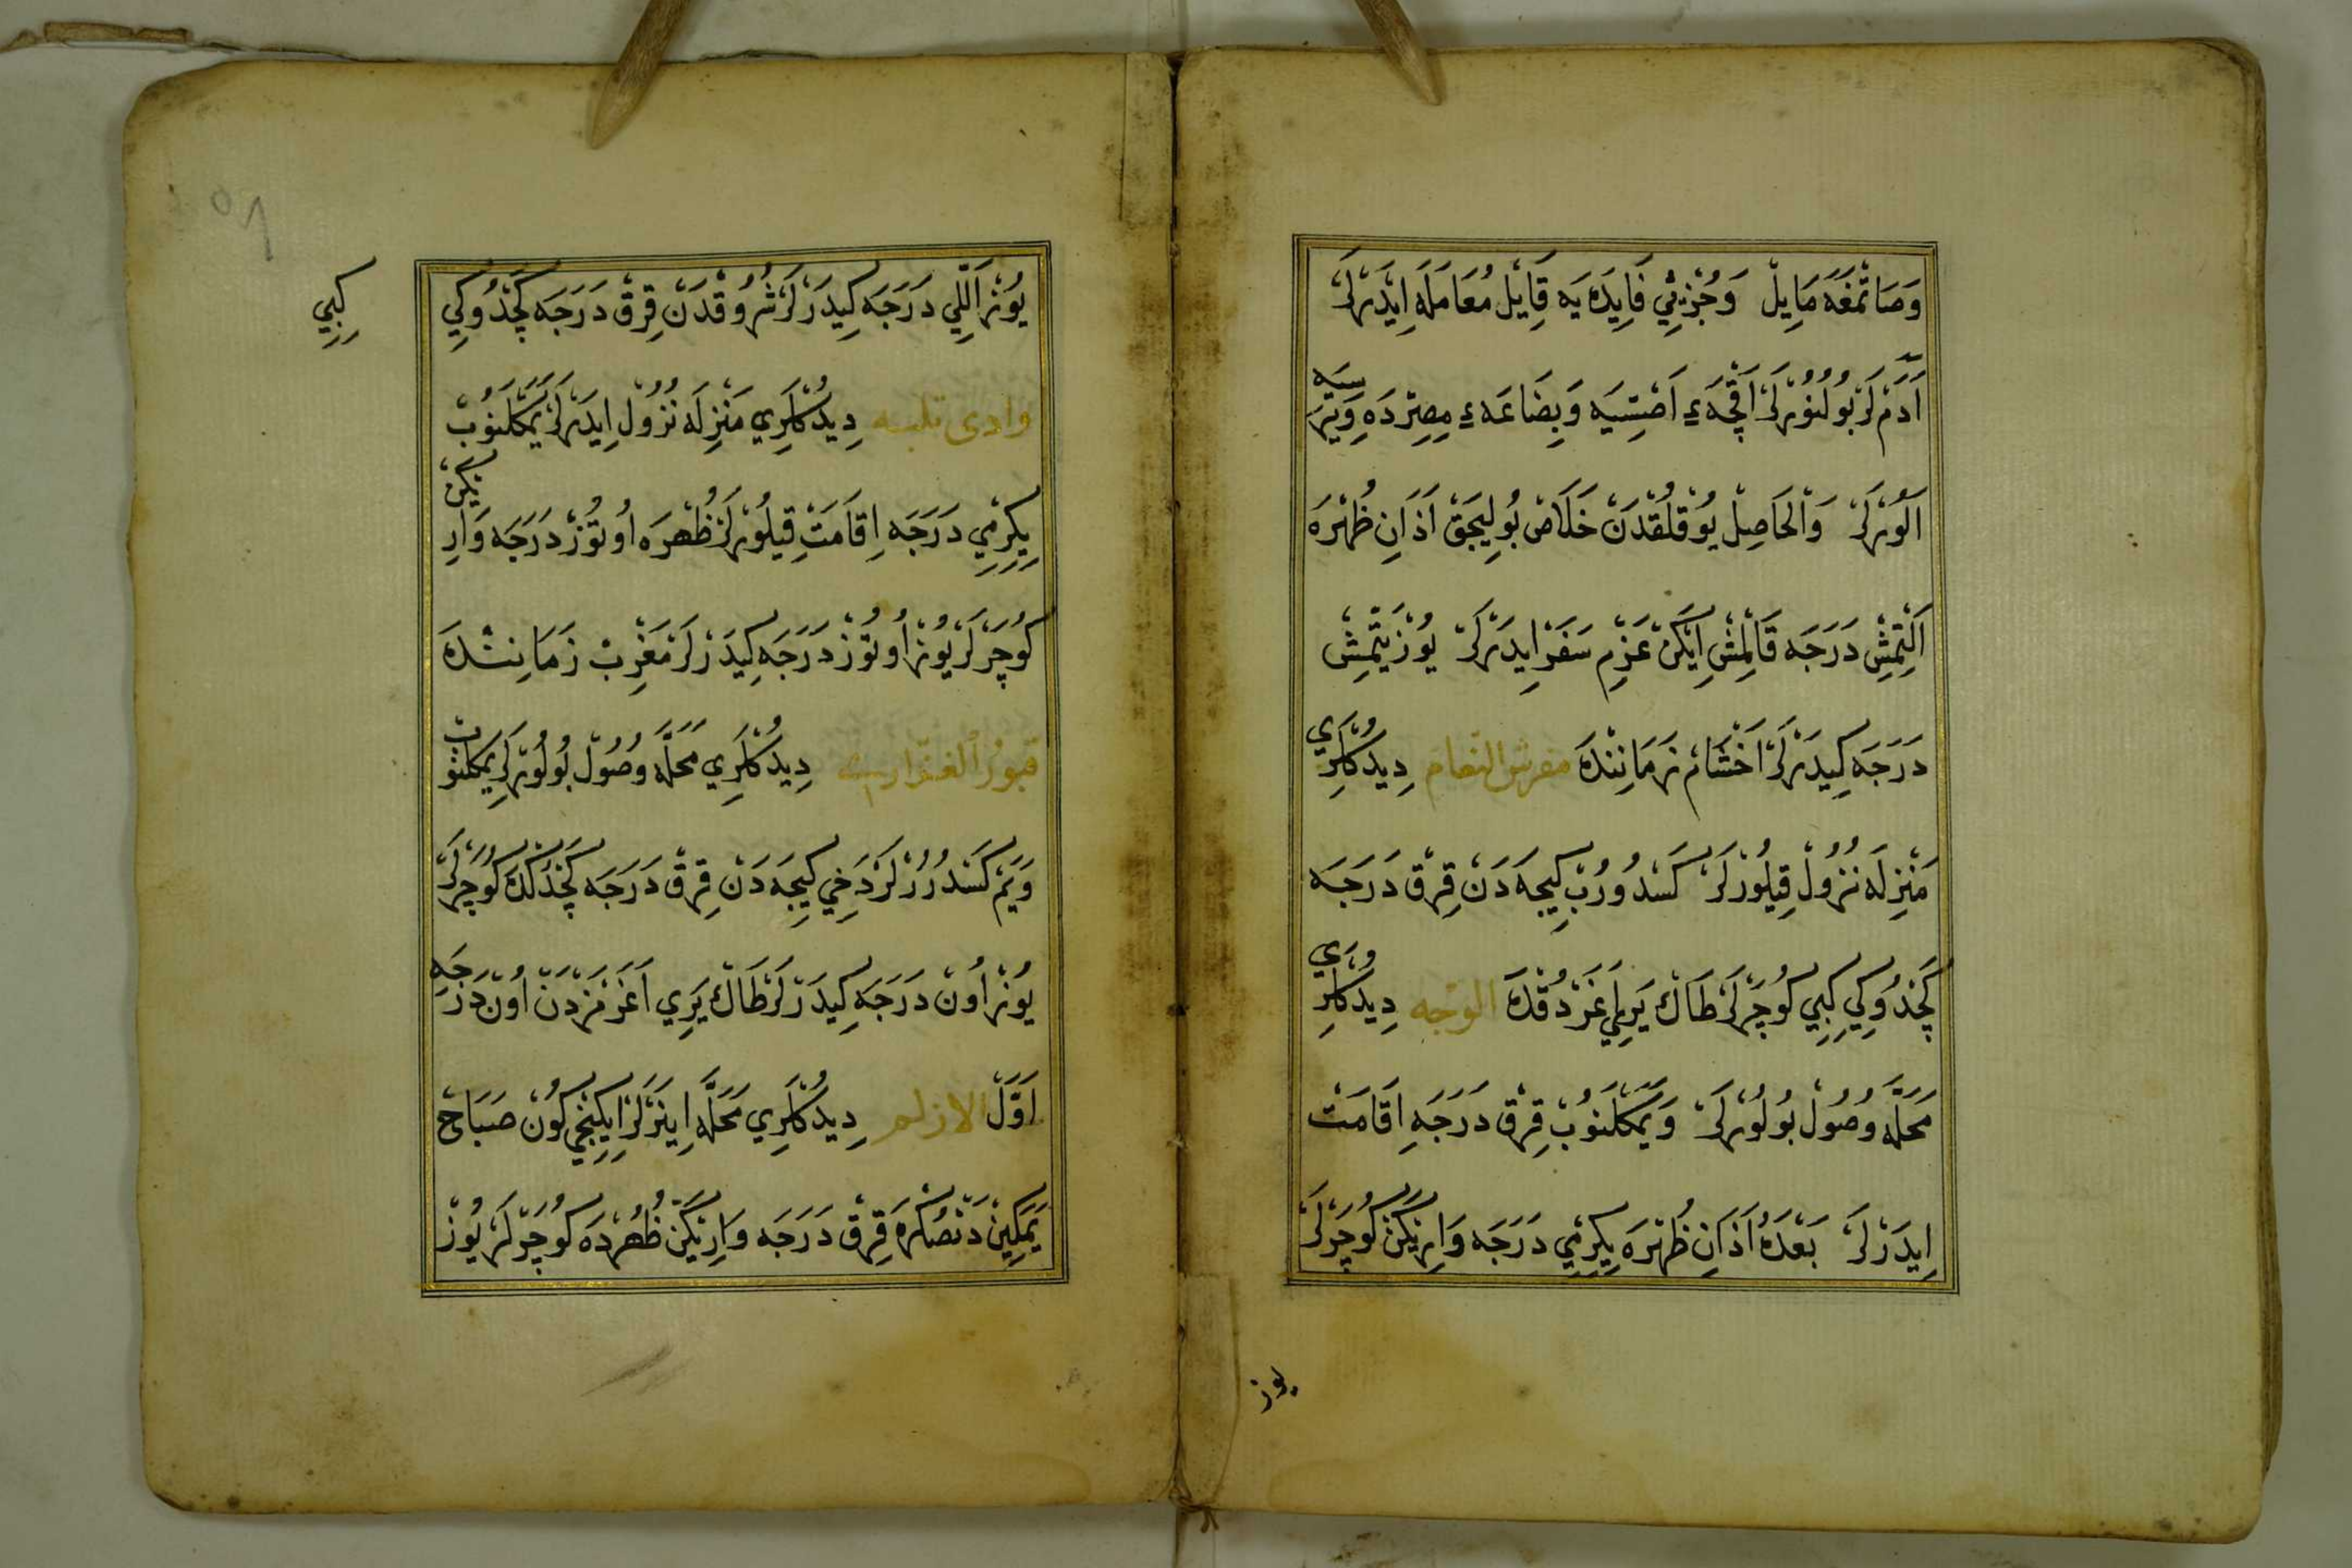 وَصَاتْمَغَه مَايِلْ وَجُزْئِي فَايِدَه يَه قَايِلْ مُعَامَلَه اِيدَرْلَرْ
آدَمْلَرْ بُولُنُورْلَرْ اَقْچَهءِ اَصِتِسِيَه وَبِضَاعَهءِ مِصِرْدَه وِيرَسِيَه
اَلُورْلَرْ وَالْحَاصِلْ يُوقْلُقْدَنْ خَلَاصْ بُولِيجَقْ اَذَانِ ظُهْرَه
اَلْتِمِشْ دَرَجَه قَالْمِشْ اِيكَنْ عَزْمِ سَفَرْ اِيدَرْلَرْ يُوزْ يَتْمِشْ
دَرَجَه كِيدَرْلَرْ اَخْشَامْ زَمَانِنْدَه مفرش النعام دِيدُكْلَرِي
مَنْزِلَه نُزُولْ قِيلُورْلَرْ كَسْدُورُبْ كِيجَه دَنْ قِرْقْ دَرَجَه
كَچْدُوكِي كِبِي كُوچَرْلَرْ طَاكْ يَرِي اَغَرْدُقْدَه الوجه دِيدُكْلَرِي
مَحَلَّه وُصُولْ بُولُورْلَرْ وَيَمَكْلَنُوبْ قِرْقْ دَرَجَه اِقَامَتْ
اِيدَرْلَرْ بَعْدَهُ اَذَانِ ظُهْرَه يِكِرْمِي دَرَجَه وَارِيكَنْ كُوچَرْلَرْ
يوز
يُوزْ اَللِّي دَرَجَه كِيدَرْلَرْ شُرُوقْدَنْ قِرْقْ دَرَجَه كَچْدُوكِي
كِبِي
وادى تلبه دِيدُكْلَرِي مَنْزِلَه نُزُولْ اِيدَرْلَرْ يَمَكْلَنُوبْ
يِكِرْمِي دَرَجَه اِقَامَتْ قِيلُورْلَرْ ظُهْرَه اُوتُوزْ دَرَجَه وَارِيكَنْ
كُوچَرْلَرْ يُوزْ اُوتُوزْ دَرَجَه كِيدَرْلَرْ مَغْرِبْ زَمَانِنْدَه
قبور دِيدُكْلَرِي مَحَلَّه وُصُولْ بُولُورْلَرْ يَمَكْلَنُوبْ
وَيَمْ كَسْدُرُرْلَرْ دَخِي كِيجَه دَنْ قِرْقْ دَرَجَه كَچْدُكْدَه كُوچَرْلَرْ
يُوزْ اُونْ دَرَجَه كِيدَرْلَرْ طَاكْ يَرِي اَغَرْمَزْدَنْ اُونْ دَرَجَه
اَوَّلْ الازلم دِيدُكْلَرِي مَحَلَّه اِينَرْلَرْ اِيكِنْجِي كُونْ صَبَاحْ
يَمَكِينْدَنْصُكْرَه قِرْقْ دَرَجَه وَارِيكَنْ ظُهْرْدَه كُوچَرْلَرْ يُوزْ